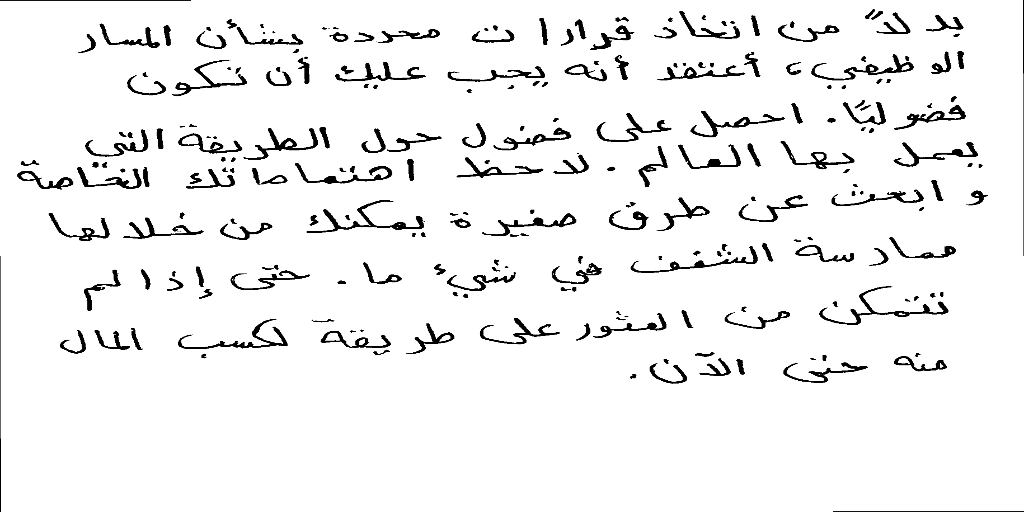 بدلاً من اتخاذ قرارات محددة بشأن المسار
الوظيفي، أعتقد أنه يجب عليك أن تكون
فضوليًا. احصل على فضول حول الطريقة التي
يعمل بها العالم. لاحظ اهتماماتك الخاصة
وابحث عن طرق صغيرة يمكنك من خلالها
ممارسة الشغف في شيء ما. حتى إذا لم
تتمكن من العثور على طريقة لكسب المال
منه حتى الآن.